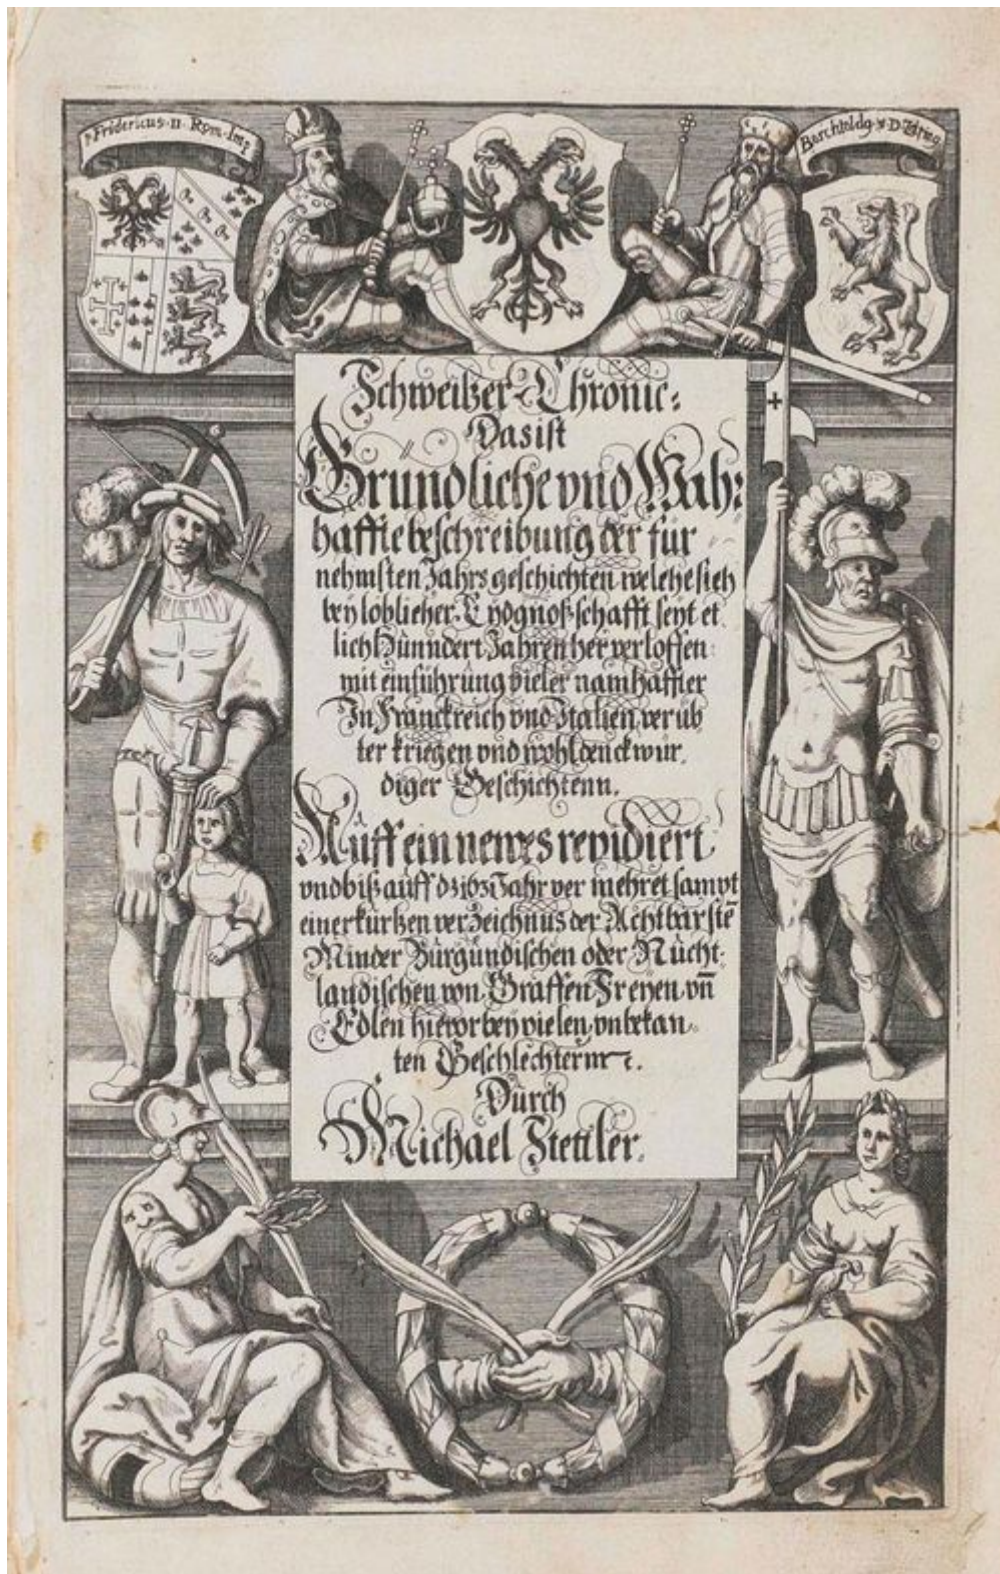 Fridericus · II · Rom · Imp
Berchtoldg · V · D · Zäring
Schweitzer-Chronic:
Das ist
Gründliche vnd Wah:
haffte beschreibung der für
nehmsten Jahrs geschichten welche sich
bey loblicher Eydgnoßschafft seyt et
lich Hunndert Jahren her verloffen:
mit einführung vieler namhaffter
In Franckreich vnd Italien verüb
ter kriegen vnd wohldenckwür,
diger Geschichtenn.
Auff ein newes revidiert
vnd biß auff ds 1631 Jahr ver mehret sampt
einer kurtzen verzeichnus der Achtbarstē
Minder Burgundischen oder Nücht-
landischen von Graffen Freyen vn̄
Edlen hievor bey vielen vnbekan-
ten Geschlechternn ꝛc.
Durch
Michael Stettler.